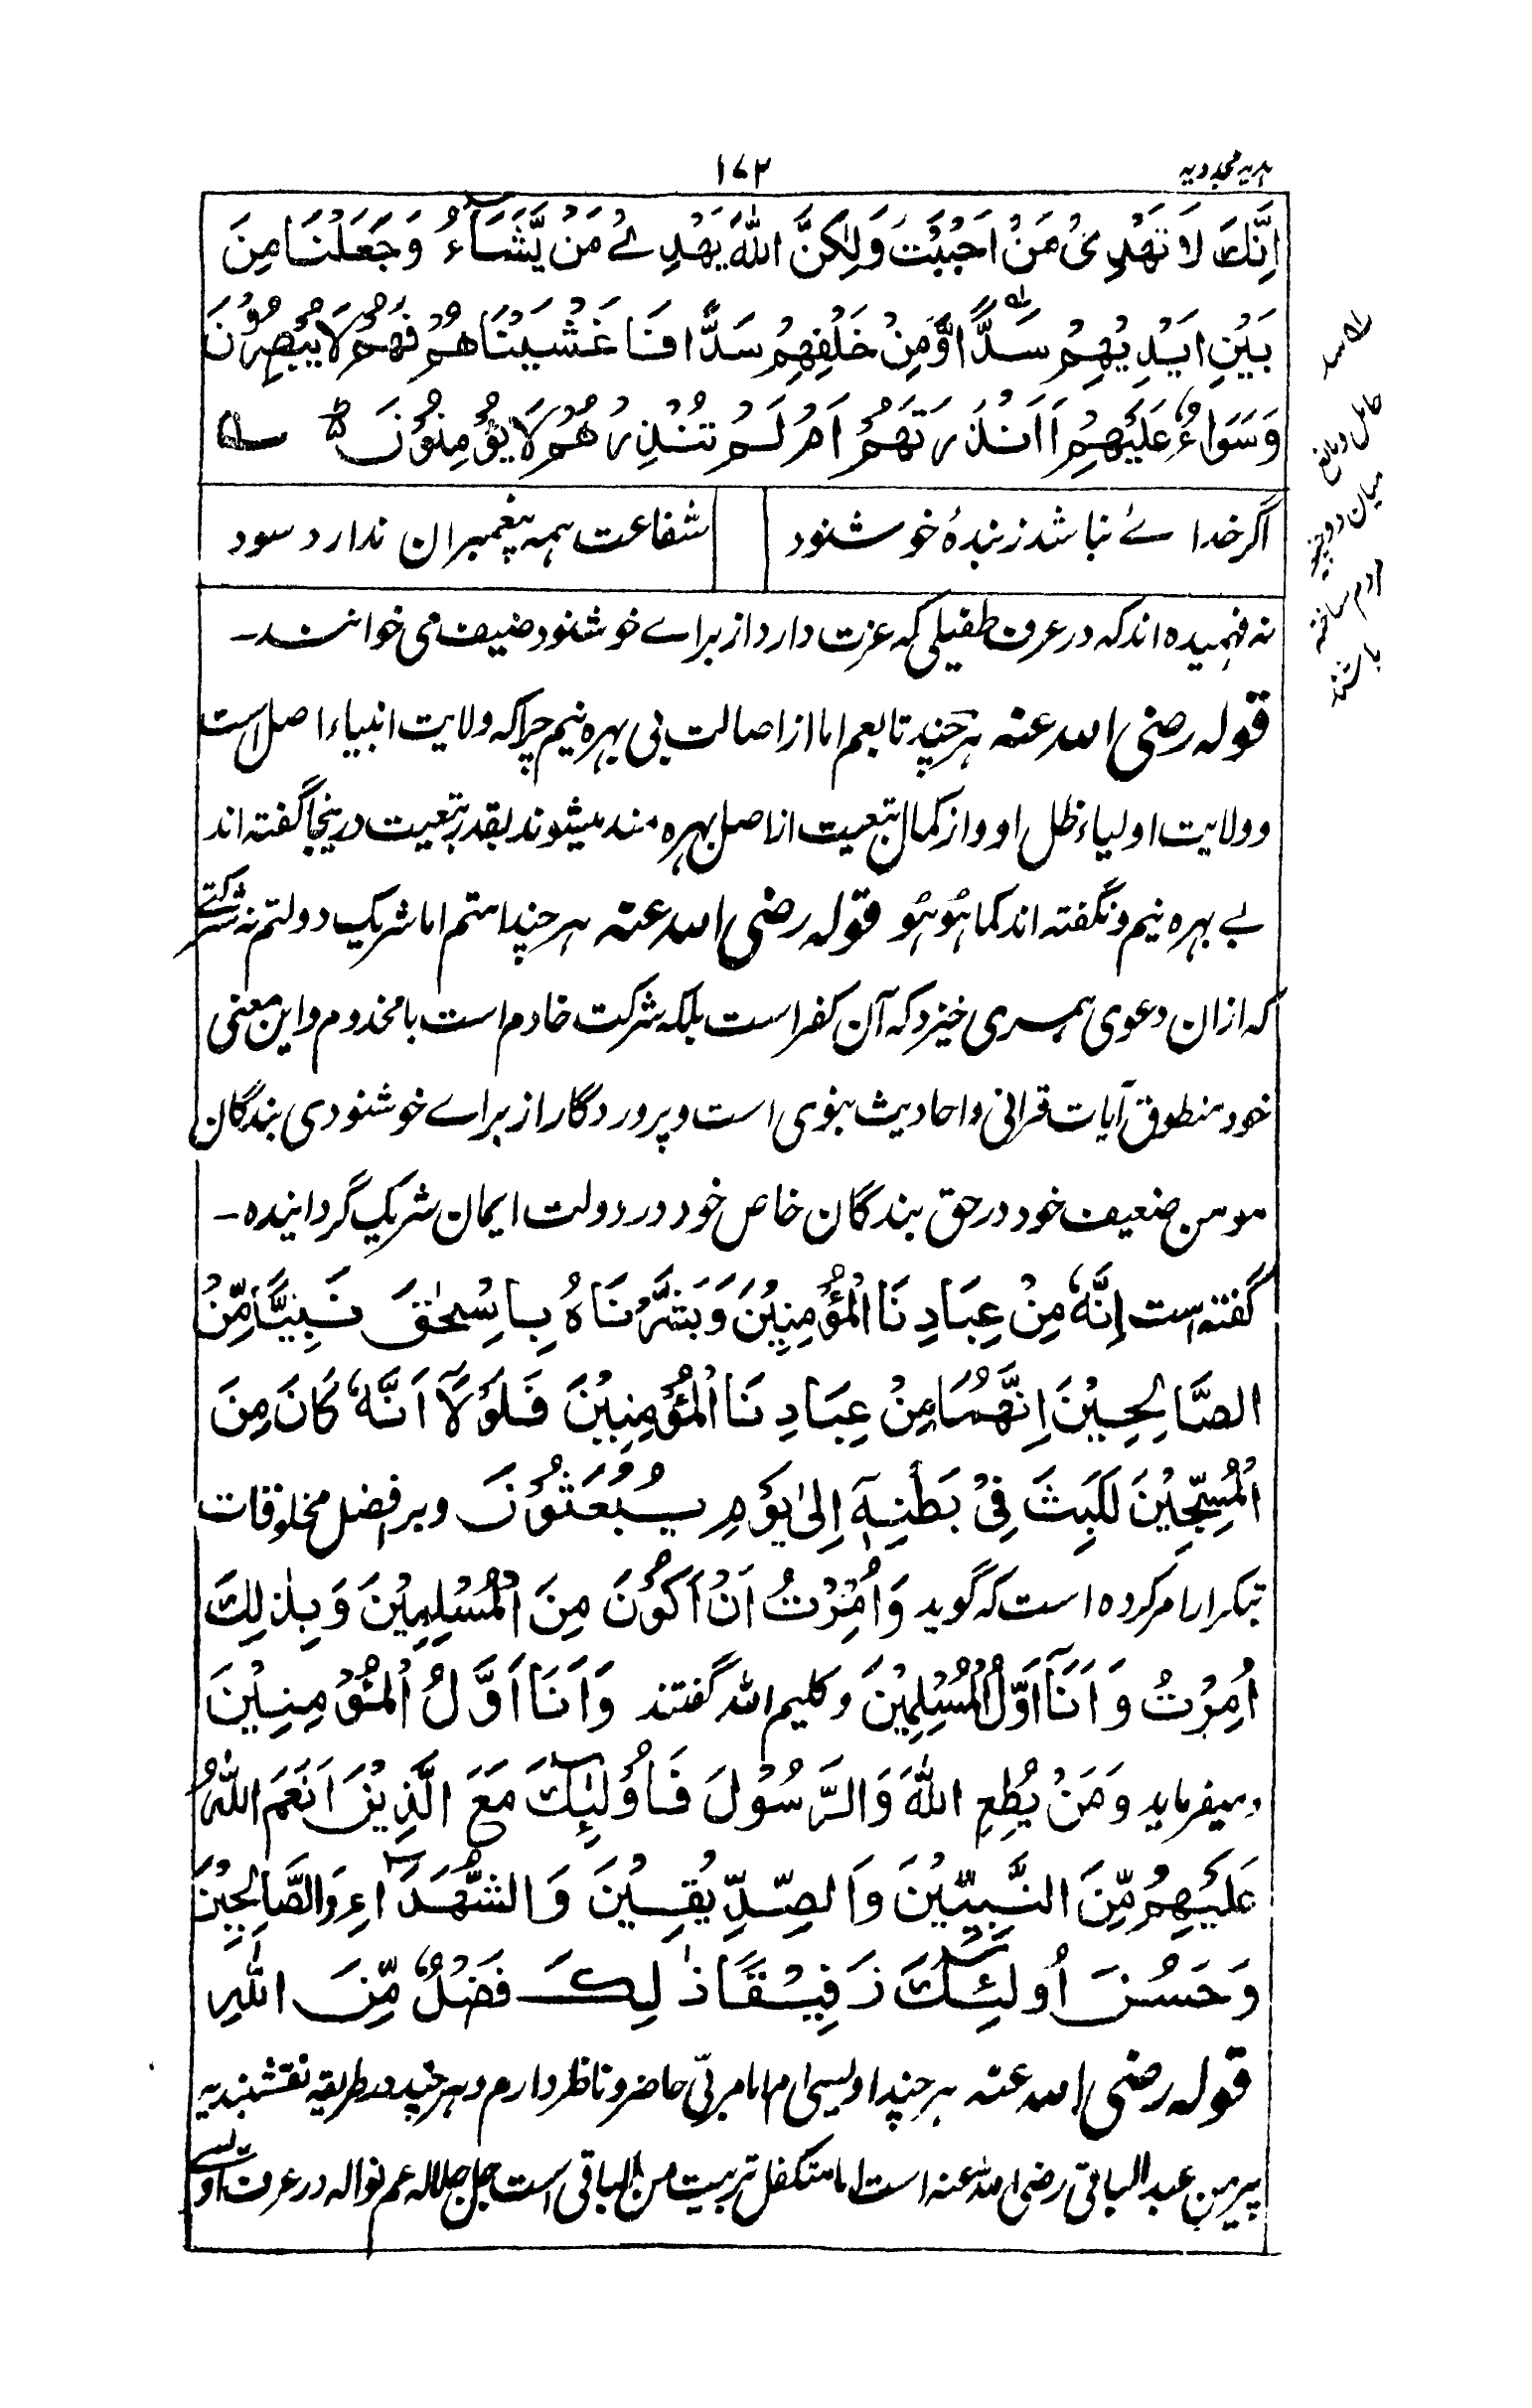 ہدیہ مجددیہ
۱۷۲
اِنَّكَ لَا تَهْدِیْ مَنْ اَحْبَبْتَ وَلٰكِنَّ اللهَ یَهْدِیْ مَنْ یَّشَآءُ وَجَعَلْنَا مِنَ
بَیْنِ اَیْدِیْهِمْ سَدًّا وَّمِنْ خَلْفِهِمْ سَدًّا فَاَغْشَیْنَاهُمْ فَهُمْ لَا یُبْصِرُوْنَ
وَسَوَاءٌ عَلَیْهِمْ اَاَنْذَرْتَهُمْ اَمْ لَمْ تُنْذِرْهُمْ لَا یُؤْمِنُوْنَ
اگر خداے نباشد ز بندهٔ خوشنود
شفاعت ہمہ پیغمبران ندارد سود
نہ فہمیدہ اند کہ در عرف طفیلی کہ عزت دارد از براے خوشنود ضیف می خوانند۔
قولہ رضی اللہ عنہ ہر چند تابعم اما از اصالت بی بہرہ نیم چرا کہ ولایت انبیاء اصل است
و ولایت اولیاء ظل او و از کمال تبعیت از اصل بہرہ مند میشوند بقدر تبعیت درینجا گفتہ اند
بے بہرہ نیم و نگفتہ اند کما ہُو ہُو قولہ رضی اللہ عنہ ہر چند امتم اما شریک دولتم نہ شرکتے
کہ ازان دعوی ہمسری خیزد کہ آن کفر است بلکہ شرکت خادم است با مخدوم و این معنی
خود منطوق آیات قرانی و احادیث نبوی است و پروردگار از براے خوشنودی بندگان
مومن ضعیف خود در حق بندگان خاص خود در دولت ایمان شریک گردانیدہ۔
گفتہ است اِنَّهٗ مِنْ عِبَادِنَا الْمُؤْمِنِیْنَ وَبَشَّرْنَاهُ بِاِسْحٰقَ نَبِیًّا مِّنْ
الصَّالِحِیْنَ اِنَّهُمَا مِنْ عِبَادِنَا الْمُؤْمِنِیْنَ فَلَوْلَآ اَنَّهٗ كَانَ مِنَ
الْمُسَبِّحِیْنَ لَلَبِثَ فِیْ بَطْنِهٖٓ اِلٰی یَوْمِ یُبْعَثُوْنَ وبر افضل مخلوقات
بتکرار امر کردہ است کہ گوید وَاُمِرْتُ اَنْ اَكُوْنَ مِنَ الْمُسْلِمِیْنَ وَبِذٰلِكَ
اُمِرْتُ وَاَنَآ اَوَّلُ الْمُسْلِمِیْنَ و کلیم اللہ گفتند وَاَنَا اَوَّلُ الْمُؤْمِنِیْنَ
و میفرماید وَمَنْ یُطِعِ اللهَ وَالرَّسُوْلَ فَاُولٰٓئِكَ مَعَ الَّذِیْنَ اَنْعَمَ اللهُ
عَلَیْهِمْ مِّنَ النَّبِیّٖنَ وَالصِّدِّیْقِیْنَ وَالشُّهَدَآءِ وَالصَّالِحِیْنَ
وَحَسُنَ اُولٰٓئِكَ رَفِیْقًا ذٰلِكَ فَضْلٌ مِّنَ اللهِ
قولہ رضی اللہ عنہ ہر چند اویسی ام اما مربّی حاضر و ناظر دارم و ہر چند در طریقہ نقشبندیہ
پیر من عبد الباقی رضی اللہ عنہ است اما متکفل تربیت من الباقی است جل جلالہ عم نوالہ در عرف اویسے
سد
حائل و مانع
میان دو چیز
مردم ساختہ
باشند